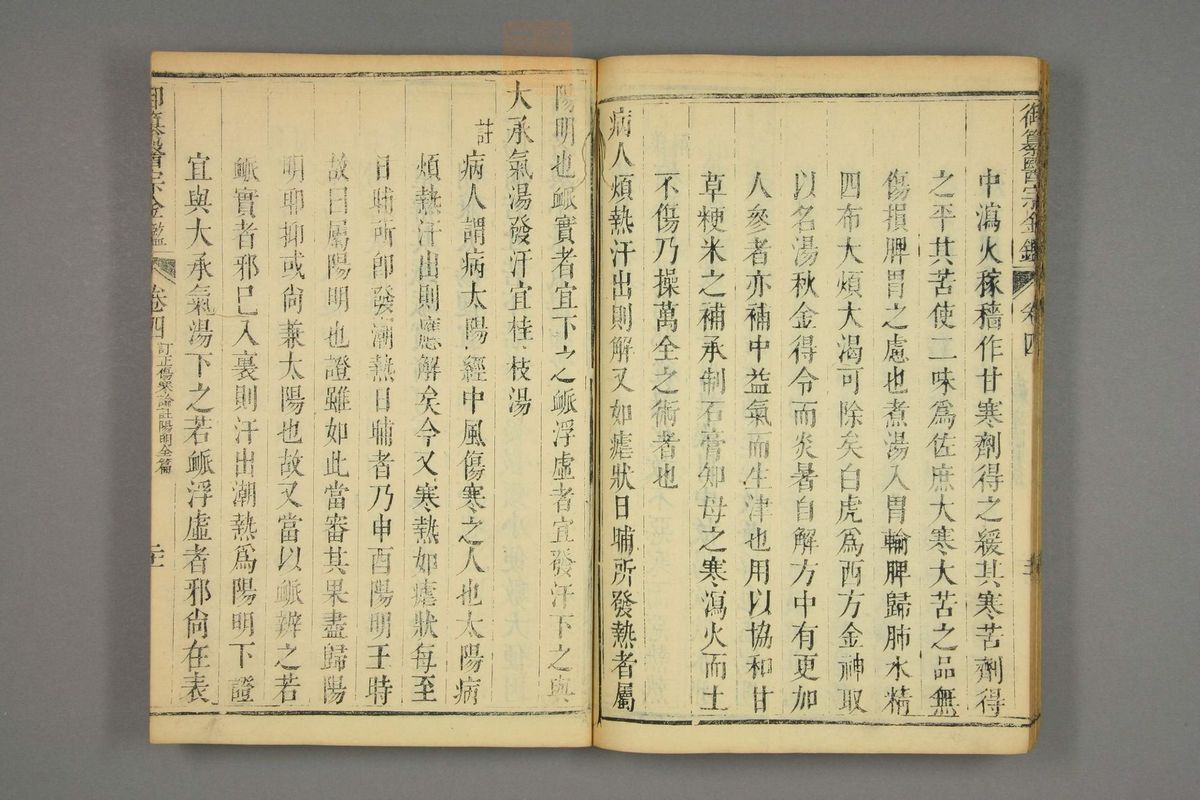 御纂醫宗金鑑 卷四
中瀉火稼穡作甘寒劑得之緩其寒苦劑得
之平其苦使二味爲佐庶大寒大苦之品無
傷損脾胃之慮也煮湯入胃輸脾歸肺水精
四布大煩大渴可除矣白虎爲西方金神取
以名湯秋金得令而炎暑自解方中有更加
人參者亦補中益氣而生津也用以協和甘
草粳米之補承制石膏知母之寒瀉火而土
不傷乃操萬全之術者也
病人煩熱汗出則解又如瘧狀日晡所發熱者屬
陽明也脈實者宜下之脈浮虛者宜發汗下之與
大承氣湯發汗宜桂枝湯
註
病人謂病太陽經中風傷寒之人也太陽病
煩熱汗出則應解矣今又寒熱如瘧狀每至
日晡所卽發潮熱日晡者乃申酉陽明王時
故曰屬陽明也證雖如此當審其果盡歸陽
明耶抑或尙兼太陽也故又當以脈辨之若
脈實者邪已入裏則汗出潮熱爲陽明下證
宜與大承氣湯下之若脈浮虛者邪尙在表
御纂醫宗金鑑 卷四 訂正傷寒論註陽明全篇